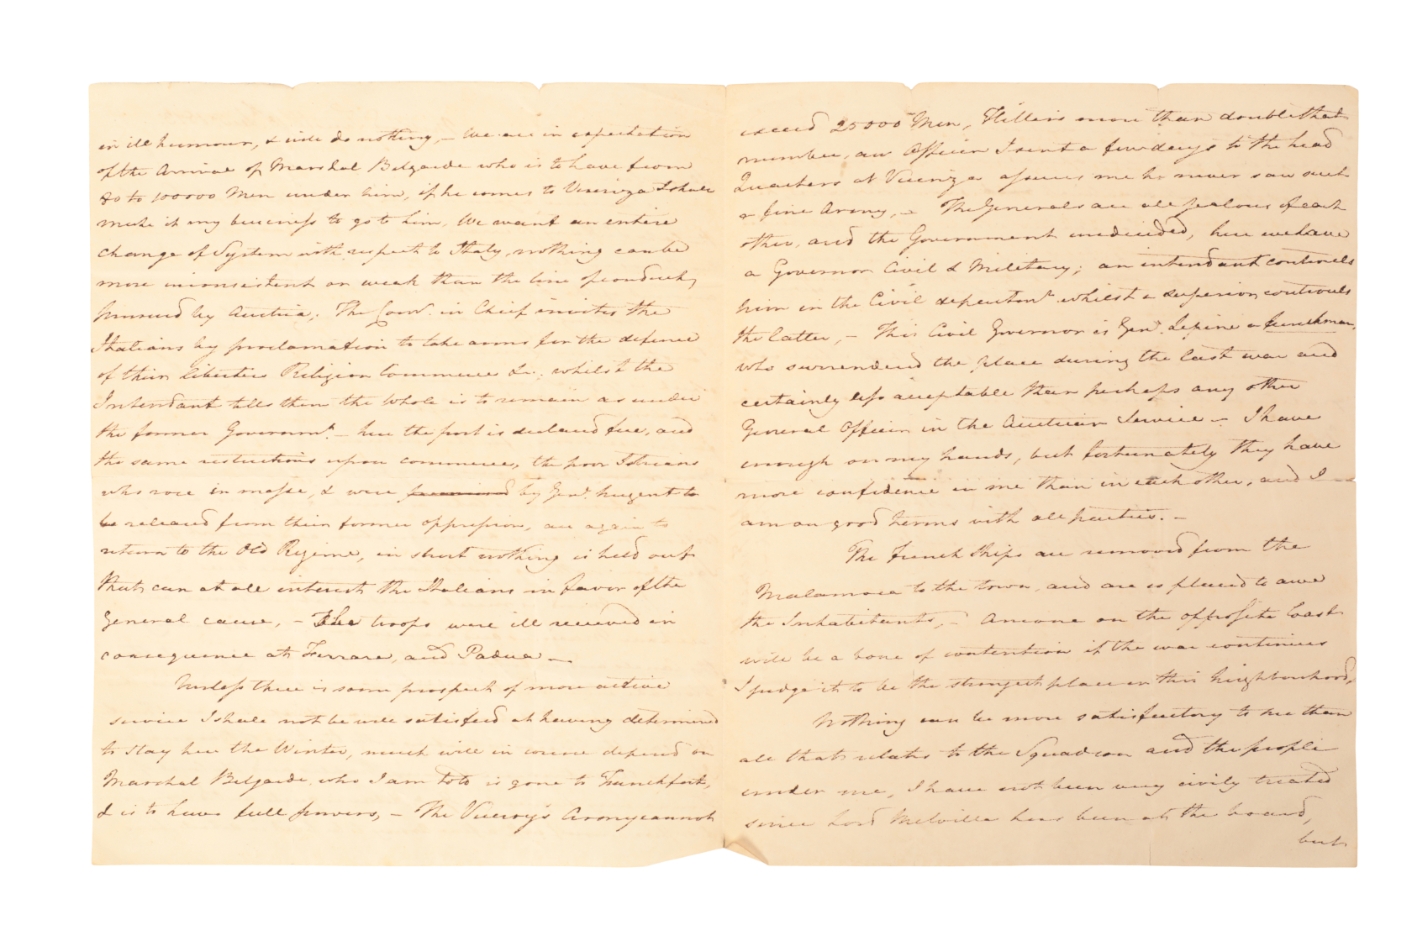 in ill humour, & will do nothing, – We are in expectation
of the Arrival of Marshal Belgarde who is to have from
80 to 100000 Men under him, if he comes to Vicenza I shall
make it my business to go to him, We want an entire
change of System with respect to Italy, nothing can be
more inconsistent or weak than the line of conduct,
pursued by Austria; The Com.r in Chief invites the
Italians by proclamation to take arms for the defence
of their Liberties Religion Commerce &c; whilst the
Intendant tells them the whole is to remain as under
the former Governm.t – here the port is declared free, and
the same restrictions upon commerce, the poor Istrians
who rose in masse, & were by Gen.l Nugent to
be released from their former oppression, are again to
return to the Old Regime, in short nothing is held out
that can at all interest the Italians in favor of the
General cause, – The troops were ill received in
consequence at Ferrara, and Padua –
Unless there is some prospect of more active
service I shall not be well satisfied at having determined
to stay here the Winter, much will in course depend on
Marshal Belgarde who I am told is gone to Franckfort,
& is to have full powers, – The Viceroy's Army cannot
exceed 25000 Men, Hillers more than double that
number, an Officer I sent a few days to the head
Quarters at Vicenza assures me he never saw such
a fine Army, – The Generals are all jealous of each
other, and the Government undecided, here we have
a Governor Civil & Military; an intendant controuls
him in the Civil departm.t whilst a superior controuls
the latter, – This Civil Governor is Gen.l Lepine a frenchman,
who surrendered the place during the last war and
certainly less acceptable than perhaps any other
General Officer in the Austrian Service – I have
enough on my hands, but fortunately they have
more confidence in me than in each other, and I
am on good terms with all parties. –
The French Ships are removed from the
Malamoca to the town, and are so placed to awe
the Inhabitants, – Ancona on the opposite Coast
will be a bone of contention if the war continues
I judge it to be the strongest place in this neighbourhood,
Nothing can be more satisfactory to me than
all that relates to the Squadron and the people
under me, I have not been very civilly treated
since Lord Melville has been at the board,
but